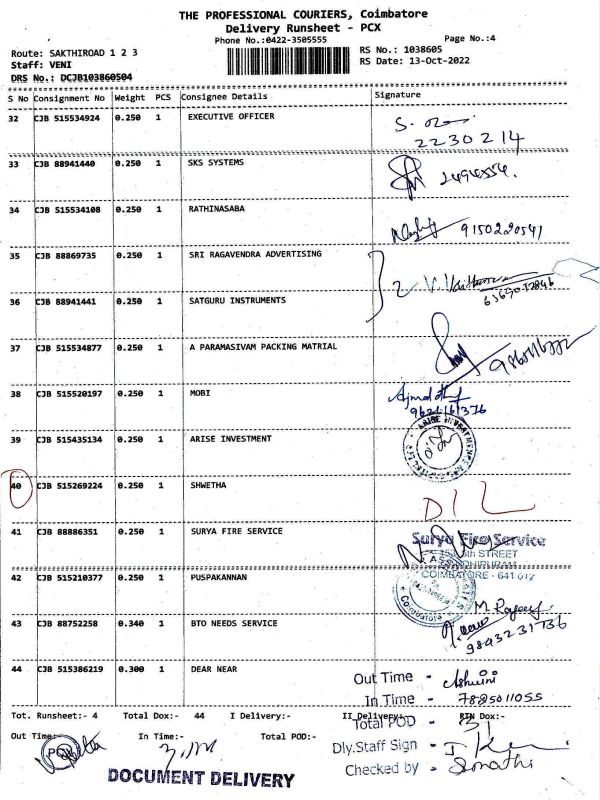 THE PROFESSIONAL COURIERS, Coimbatore
Delivery Runsheet - PCX
Phone No.:0422-3505555
Page No.:4
Route: SAKTHIROAD 1 2 3
RS No.: 1038605
Staff: VENI
RS Date: 13-Oct-2022
DRS No.: DCJB103860504
S No Consignment No Weight PCS Consignee Details Signature
32 CJB 515534924 0.250 1 EXECUTIVE OFFICER
2230214
33 CJB 88941440 0.250 1 SKS SYSTEMS
34 CJB 515534108 0.250 1 RATHINASABA
9150220541
35 CJB 88869735 0.250 1 SRI RAGAVENDRA ADVERTISING
36 CJB 88941441 0.250 1 SATGURU INSTRUMENTS
37 CJB 515534877 0.250 1 A PARAMASIVAM PACKING MATRIAL
38 CJB 515520197 0.250 1 MOBI
39 CJB 515435134 0.250 1 ARISE INVESTMENT
40 CJB 515269224 0.250 1 SHWETHA
D I L
41 CJB 88886351 0.250 1 SURYA FIRE SERVICE
Surya Fire Service
STREET
COIMBATORE - 641 012
42 CJB 515210377 0.250 1 PUSPAKANNAN
Coimbatore
43 CJB 88752258 0.340 1 BTO NEEDS SERVICE
9843231736
44 CJB 515386219 0.300 1 DEAR NEAR
Out Time - Ashwini
In Time - 7825011055
Tot. Runsheet:- 4 Total Dox:- 44 I Delivery:- II Delivery:- RTN Dox:-
Total POD -
Out Time:- In Time:- Total POD:-
Dly.Staff Sign -
Checked by -
DOCUMENT DELIVERY